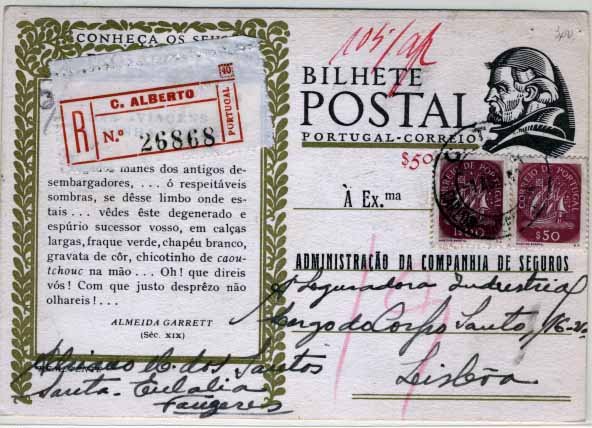 CONHEÇA OS SEUS
C. ALBERTO
R
N.º 26868
PORTUGAL
manes dos antigos de-
sembargadores, . . . ó respeitáveis
sombras, se dêsse limbo onde es-
tais . . . vêdes êste degenerado e
espúrio sucessor vosso, em calças
largas, fraque verde, chapéu branco,
gravata de côr, chicotinho de caou-
tchouc na mão . . . Oh! que direis
vós! Com que justo desprêzo não
olhareis! . . .
ALMEIDA GARRETT
(Séc. XIX)
dos Santos
Santa Eulalia
Fânzeres
BILHETE
POSTAL
PORTUGAL-CORREIO
$50
À Ex.ma
CORREIO DE PORTUGAL
CORREIO DE PORTUGAL
$50
ADMINISTRAÇÃO DA COMPANHIA DE SEGUROS
A Seguradora Industrial
Largo do Corpo Santo,
Lisbôa